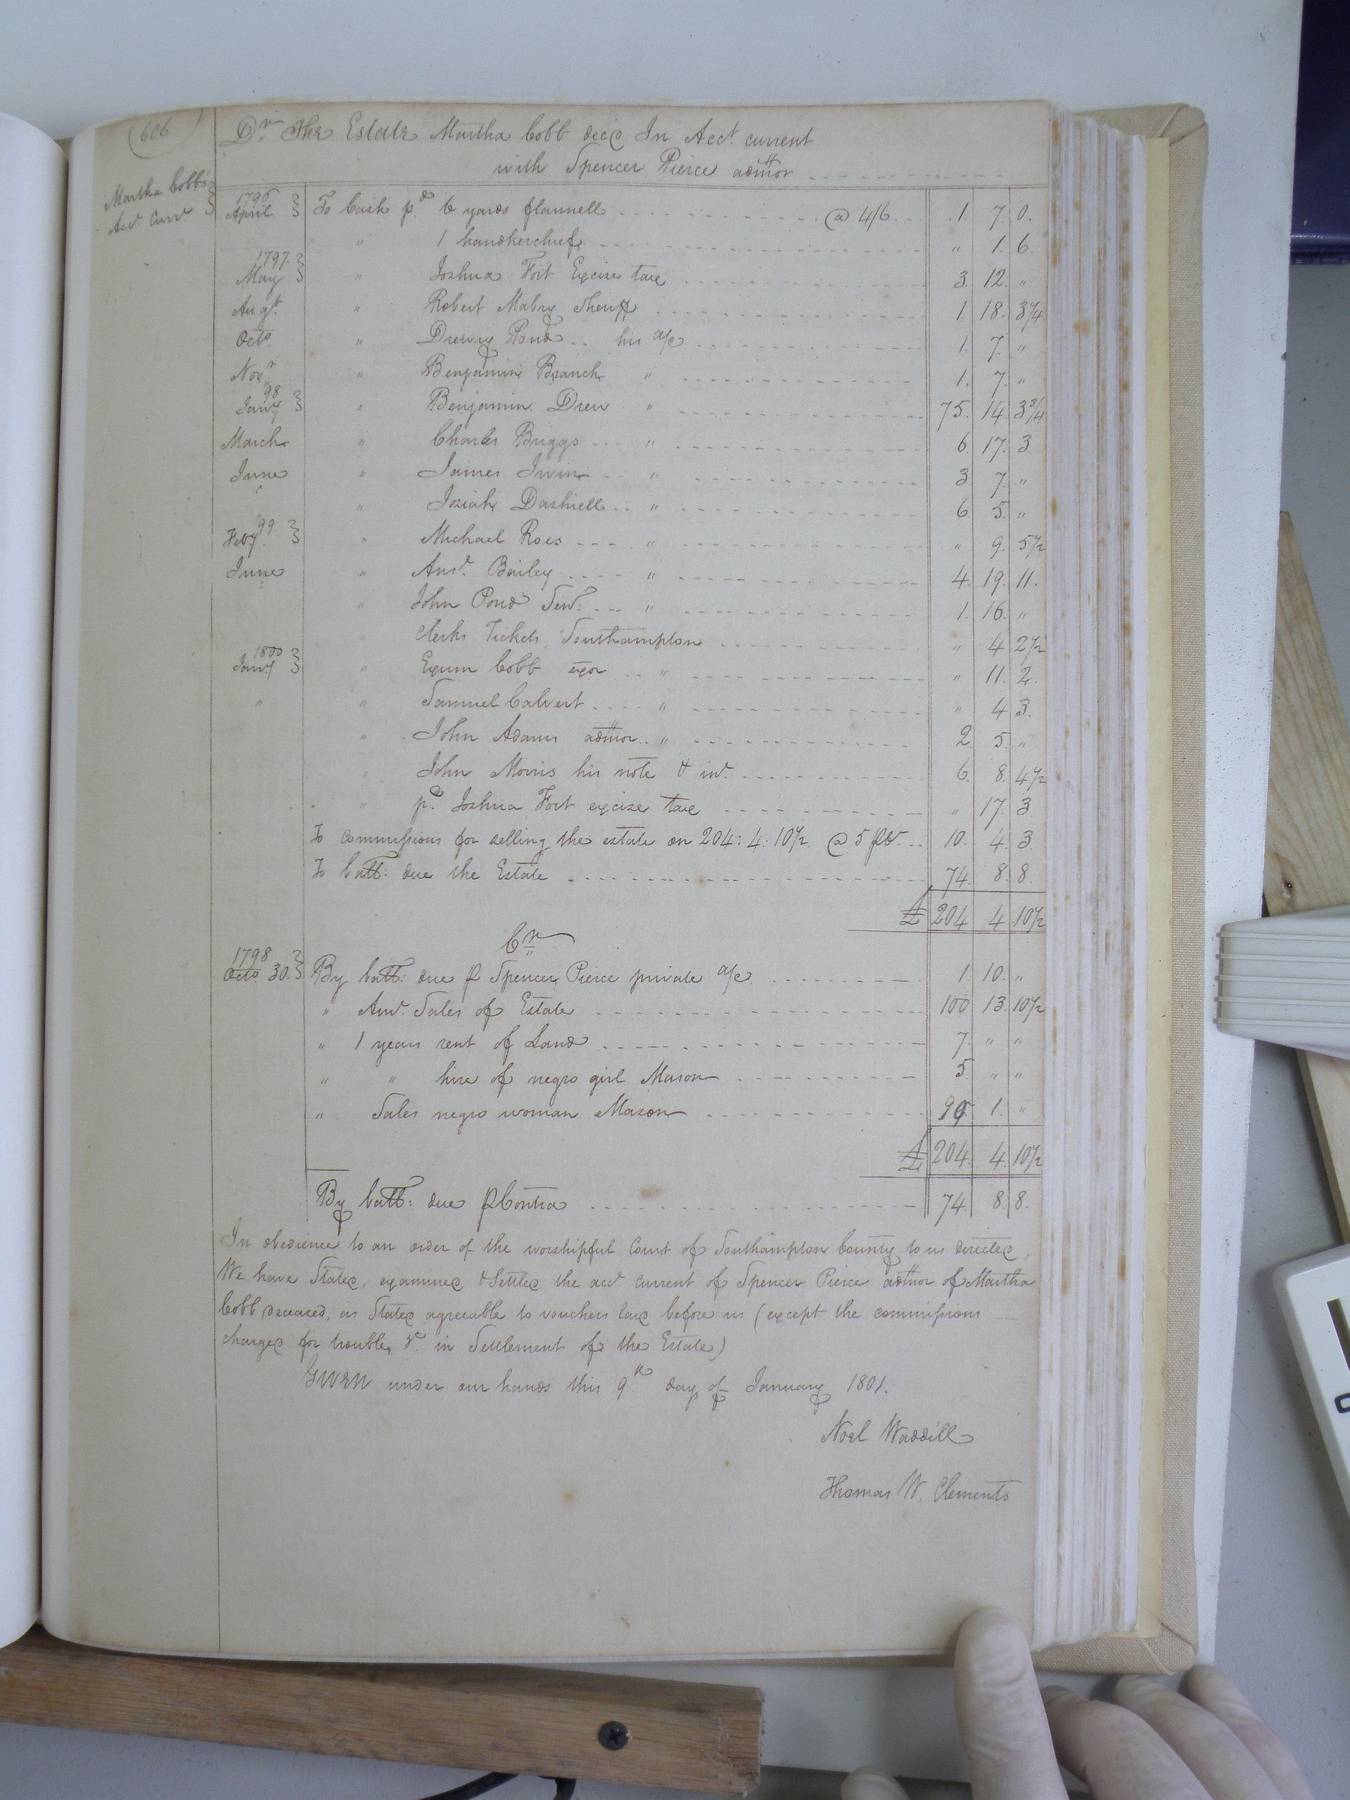 (606)
Dr The Estate Martha Cobb decd In Acct. current
with Spencer Pierce admor
Martha Cobbs
Acc. Curr
1796
April To Cash pd. 6 yards flannell @ 4/6 1. 7. 0.
" 1 handkerchief " 1. 6
1797
May " Joshua Fort Excise tax 3. 12. "
Augt. " Robert Mabry Sheriff 1. 18. 3 1/4
Octo. " Drewry Pond his a/c 1. 7. "
Novr. " Benjamin Branch " 1. 7. "
98
Jany " Benjamin Drew " 75. 14. 3 3/4
March " Charles Briggs " 6. 17. 3.
June " James Irwin " 3 7. "
" Josiah Dashiell " 6 5. "
99
Feby " Michael Roes " " 9. 5 1/2
June " And. Bailey " 4. 19. 11.
" John Pond " 1. 16. "
Clerks Tickets, Southampton " 4 2 1/2
1800
Jany " Exum Cobb exor " " 11. 2.
" " Samuel Calvert " " 4 3.
" John Adams admor " 2 5. "
" John Morris his note & int. 6. 8. 4 1/2
" pd. Joshua Fort excise tax " 17. 3
To commissions for selling the estate on 204: 4: 10 1/2 @ 5 pCt. 10. 4. 3.
To ball: due the Estate 74. 8. 8
£ 204 4 10 1/2
Cr
1798
Octo. 30. By ball: due p Spencer Pierce private a/c 1. 10. "
" Amt. Sales of Estate 100 13. 10 1/2
" 1 years rent of Land 7. " "
" " hire of negro girl Mason 5. " "
" Sales negro woman Mason 90 1. "
£ 204 4. 10 1/2
By ball: due p Contra 74 8. 8.
In obedience to an order of the worshipful Court of Southampton County to us directed,
We have Stated, examined & Settled the acct. current of Spencer Pierce admor of Martha
Cobb deceased, as Stated agreeable to vouchers laid before us (except the commissions
charged for trouble, &c. in Settlement of the Estate)
Given under our hands this 9th day of January 1801.
Noel Waddill
Thomas W. Clements